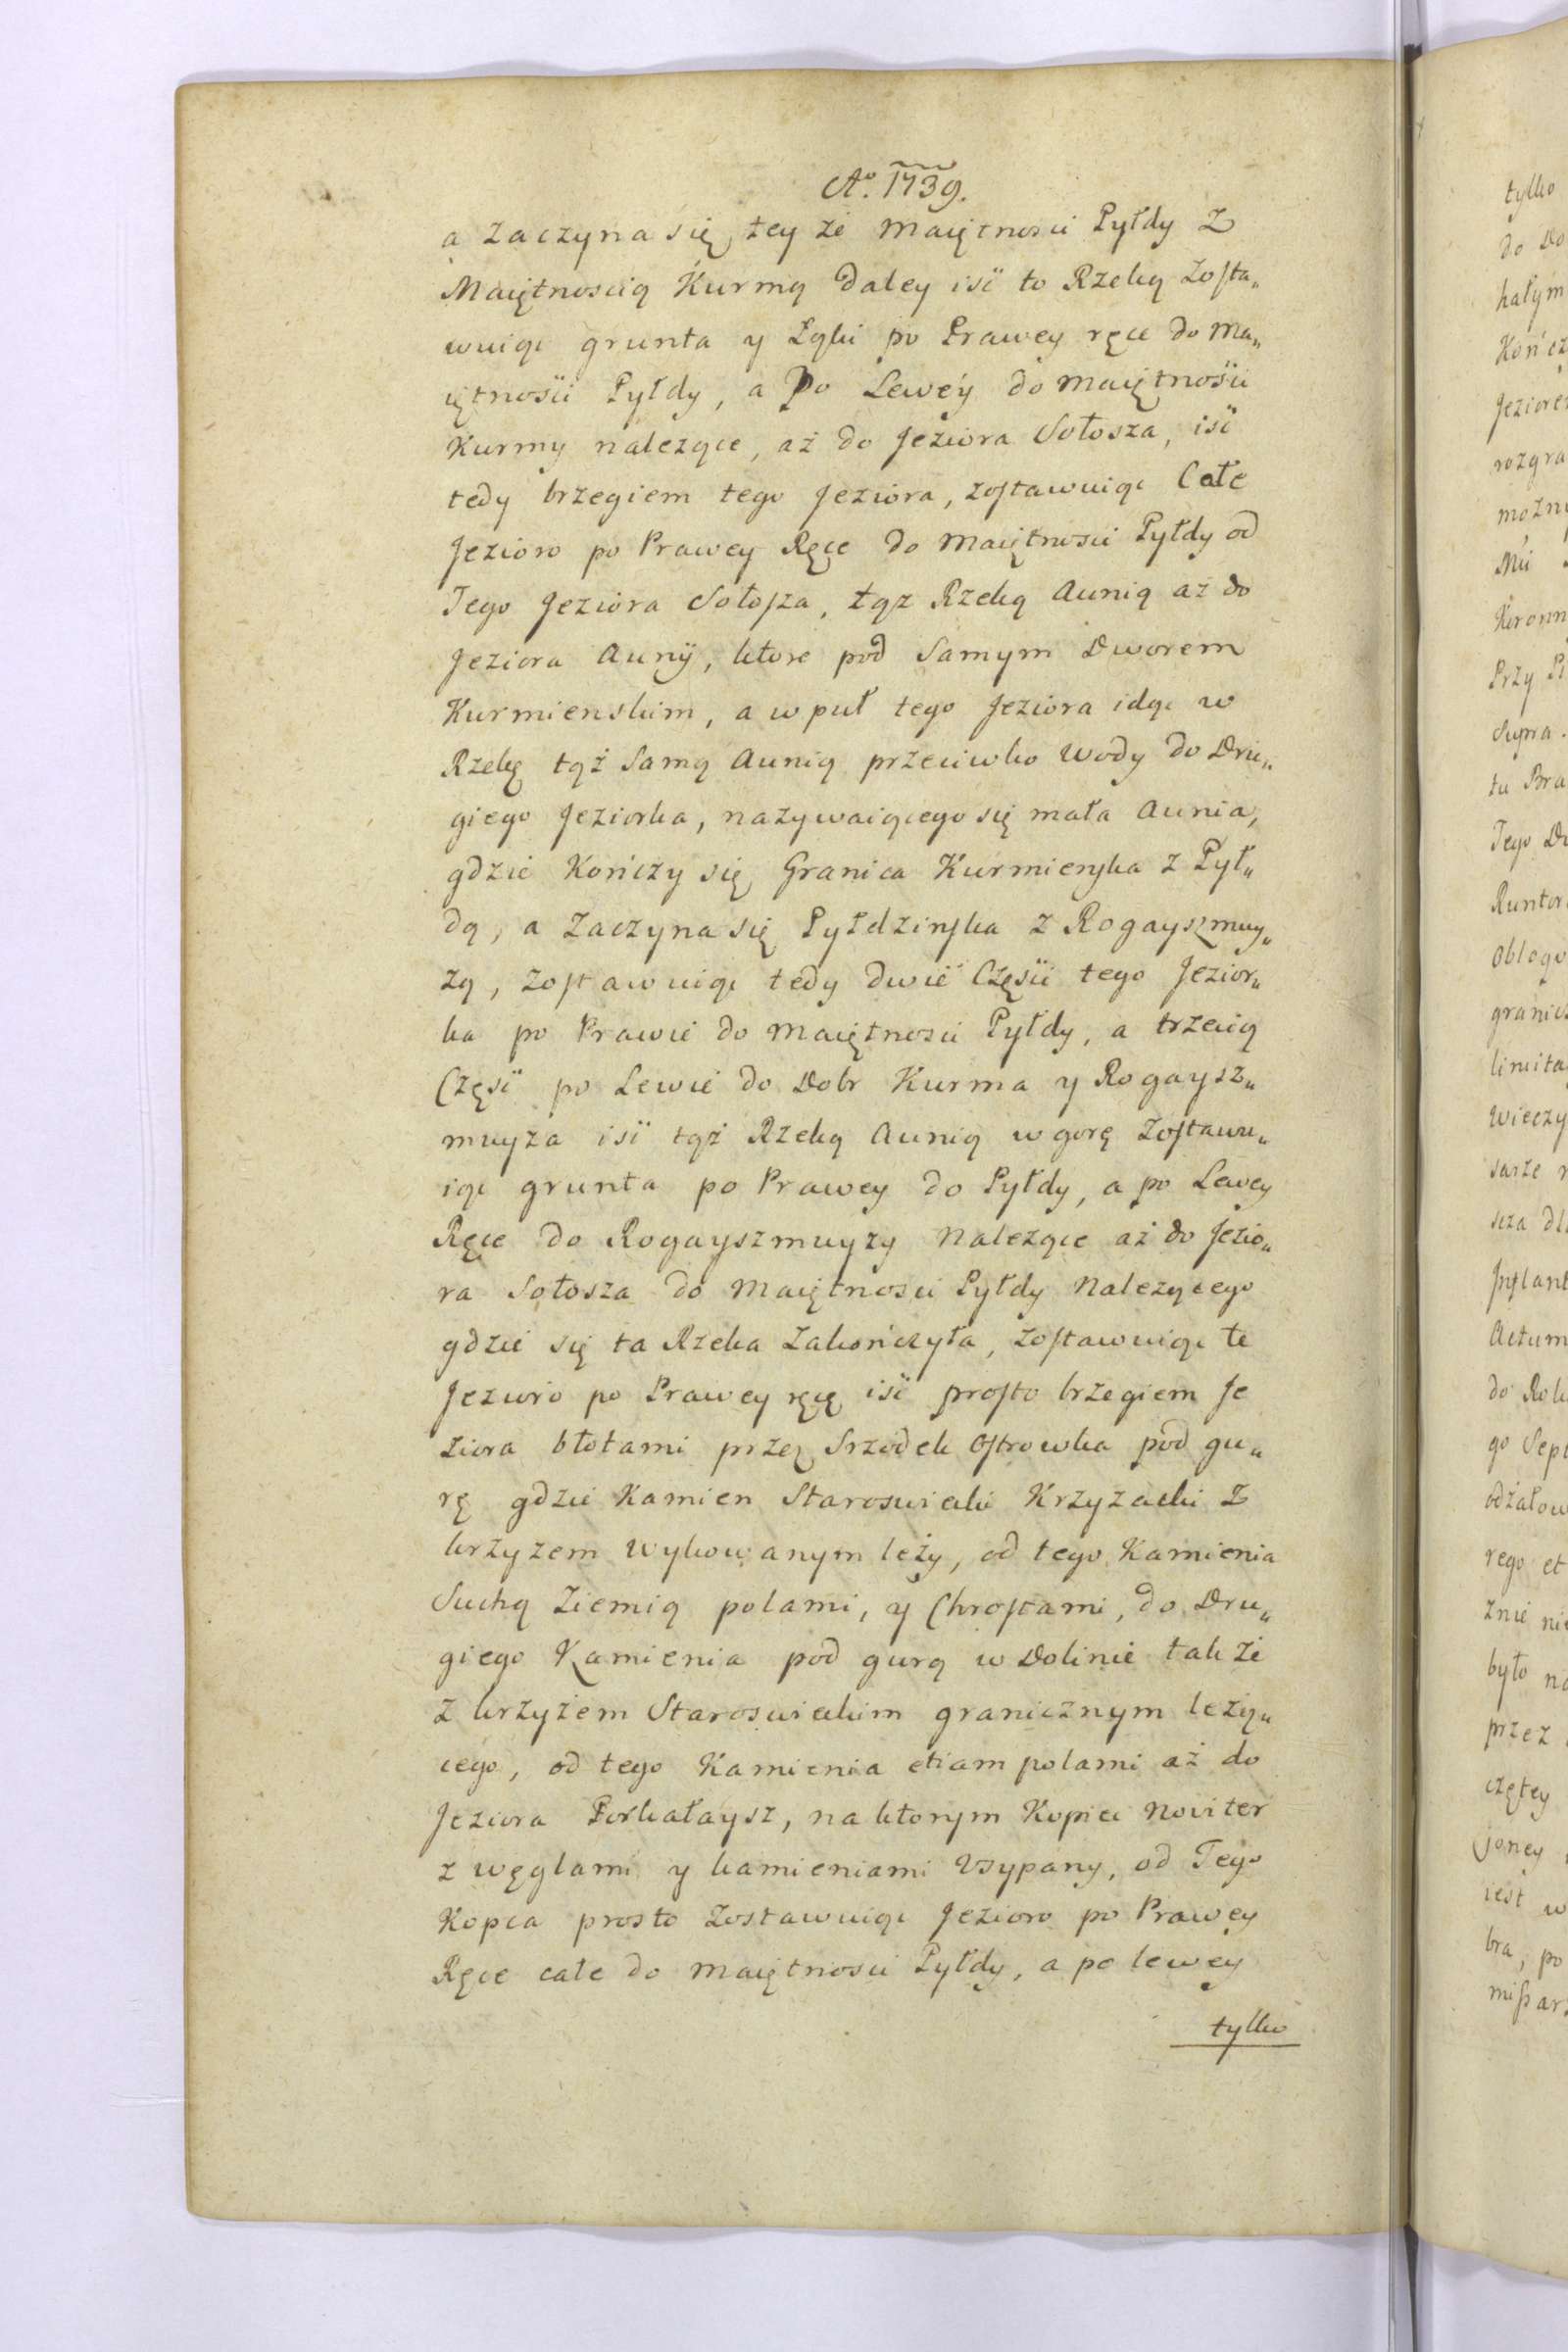 Ao. 1739.
a zaczyna się tey że Maiętnosci Pyłdy z
Maiętnoscią Kurmą daley iść to Rzeką zosta„
wuiąc grunta y Łąki po Prawey ręce do Ma„
iętności Pyłdy, a Po Lewey do maiętności
Kurmy należące, aż do Jeziora Sołosza, iść
tedy brzegiem tego Jeziora, zostawuiąc Całe
Jezioro po Prawey Ręce do Maiętnosci Pyłdy od
Tego Jeziora Sołosza, tąż Rzeką Aunią aż do
Jeziora Auny, ktore pod Samym Dworem
Kurmienskim, a w puł tego Jeziora idąc w
Rzekę tąż Samą Aunią przeciwko Wody do Dru„
giego Jeziorka, nazywaiącego się mała Aunia,
gdzie Kończy się Granica Kurmienska z Pył„
dą, a Zaczyna się Pyłdzinska z Rogayszmuy„
zą, Zostawuiąc tedy dwie Części tego Jezior„
ka po Prawie do Maiętnosci Pyłdy, a trzecią
Część po Lewie do Dobr Kurma y Rogaysz„
muyza iść tąż Rzeką Aunią w gorę Zostawu„
iąc grunta po Prawey do Pyłdy, a po Lewey
Ręce do Rogayszmuyzy Należące aż do Jezio„
ra Sołosza do Maiętnosci Pyłdy Nalezącego
gdzie się ta Rzeka Zakończyła, Zostawuiąc te
Jezioro po Prawey ręcę iść prosto brzegiem Je
ziora błotami przez Srzodek Ostrowka pod gu„
rę gdzie Kamien Staroswiecki Krzyzacki z
krzyzem Wykowanym leży, od tego Kamienia
Suchą Ziemią polami, y Chrostami, do Dru„
giego Kamienia pod gurą w Dolinie tak że
z krzyżem Staroswieckim granicznym leżą„
cego, od tego Kamienia etiam polami aż do
Jeziora Porkałaysz, na ktorym Kopiec noviter
z węglami y kamieniami Usypany, od Tego
Kopca prosto Zostawuiąc Jezioro po Prawey
Ręce całe do Maiętnosci Pyłdy, a po lewey
tylko
tylko
do Do
kałym
Kończ
Jeziore
rozgra
możny
Mci
Koronn
Przy Pi
Supra
tu Bra
Tego Du
Runtor
Obloqu
granics
limita
Wieczy
sarze
scza dl
Inflant
Actum
do Rok
go Sept
odżałow
rego et
znie nie
było na
przez
czętey
soney
iest w
bra, po